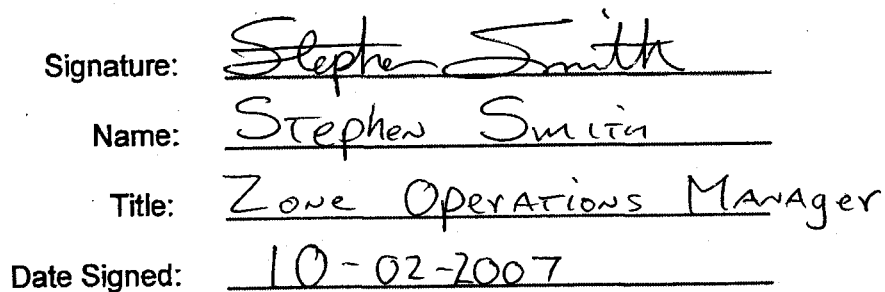 Signature: Stephen Smith
Name: Stephen Smith
Title: Zone Operations Manager
Date Signed: 10-02-2007